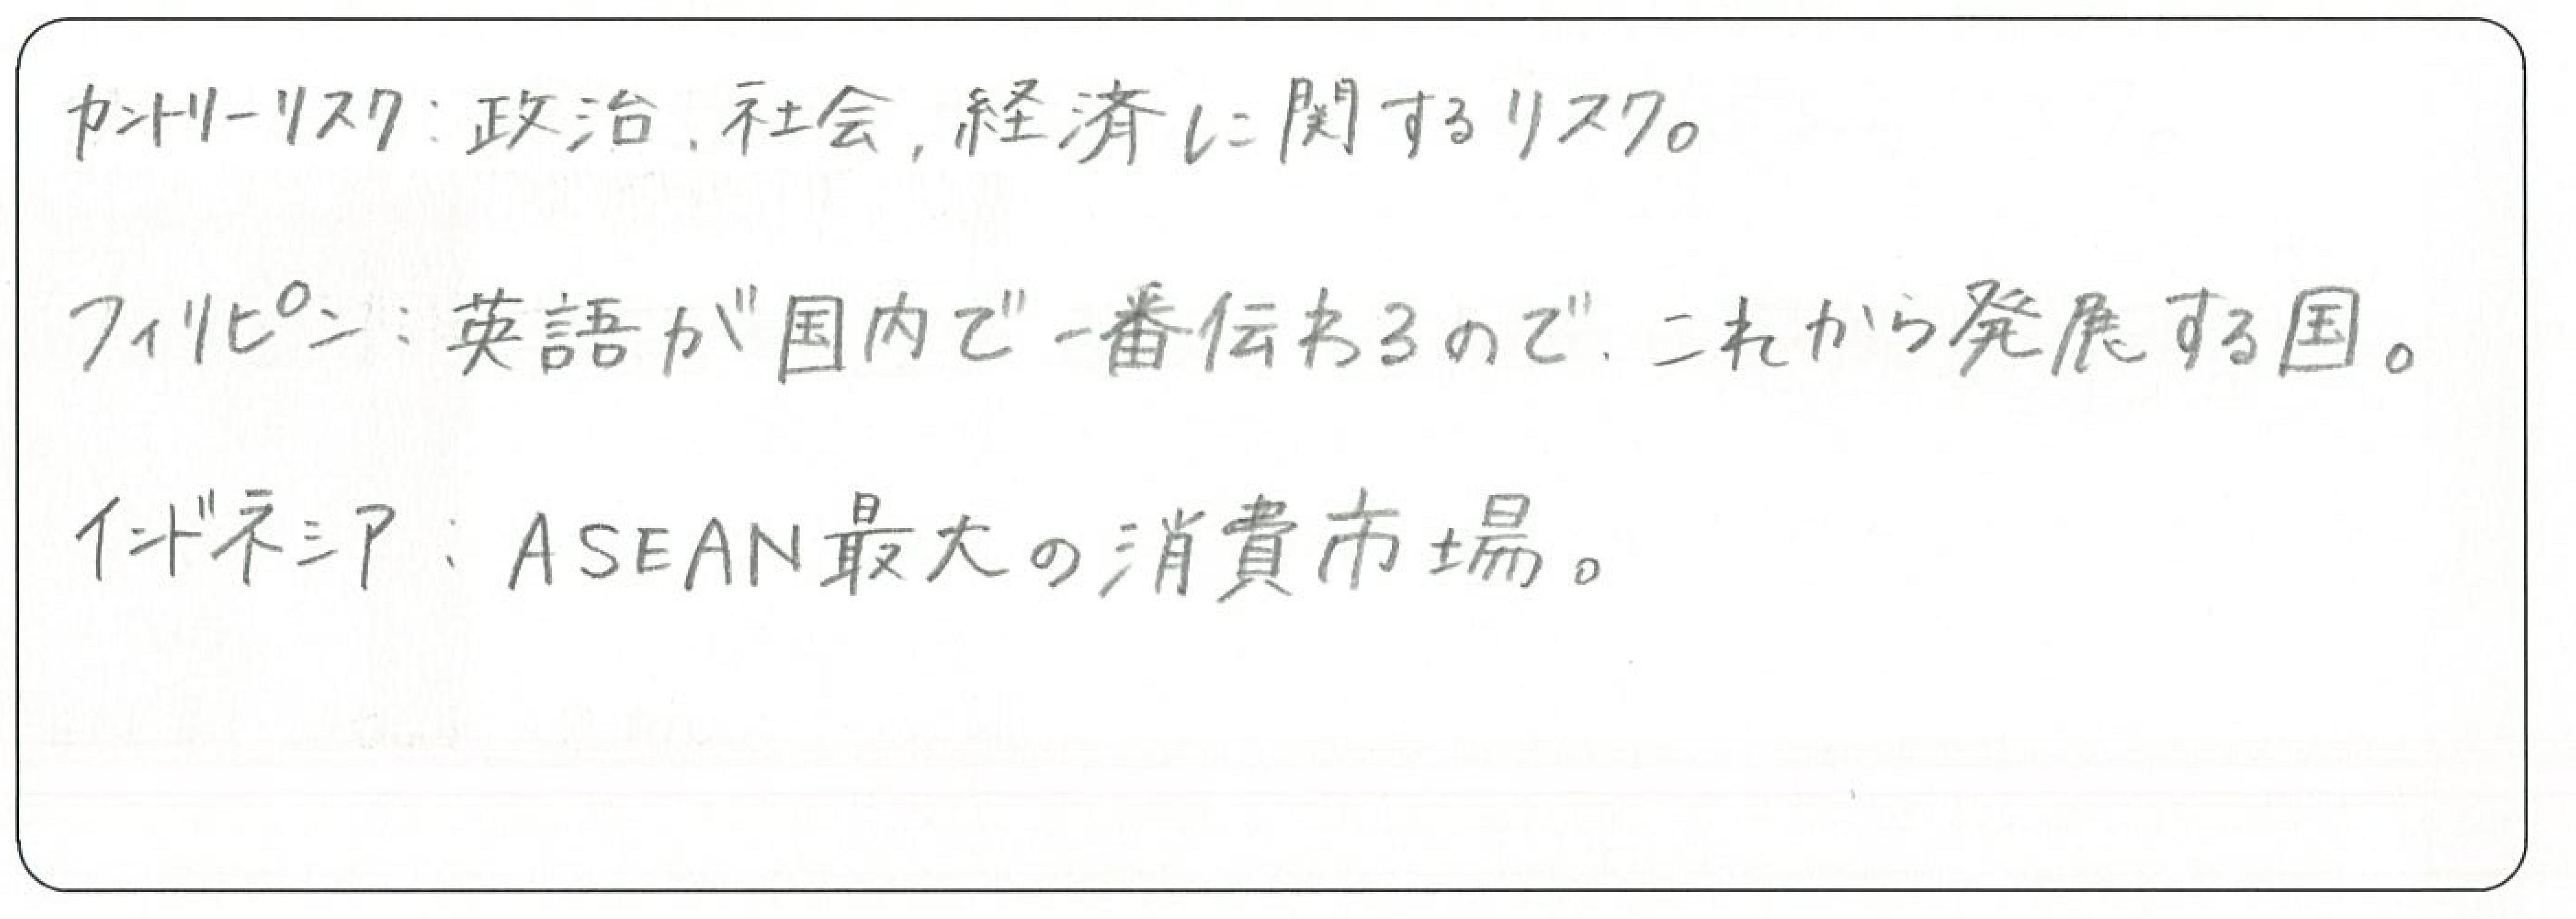 カントリーリスク:政治、社会,経済に関するリスク。
フィリピン:英語が国内で一番伝わるので、これから発展する国。
インドネシア:ASEAN最大の消費市場。